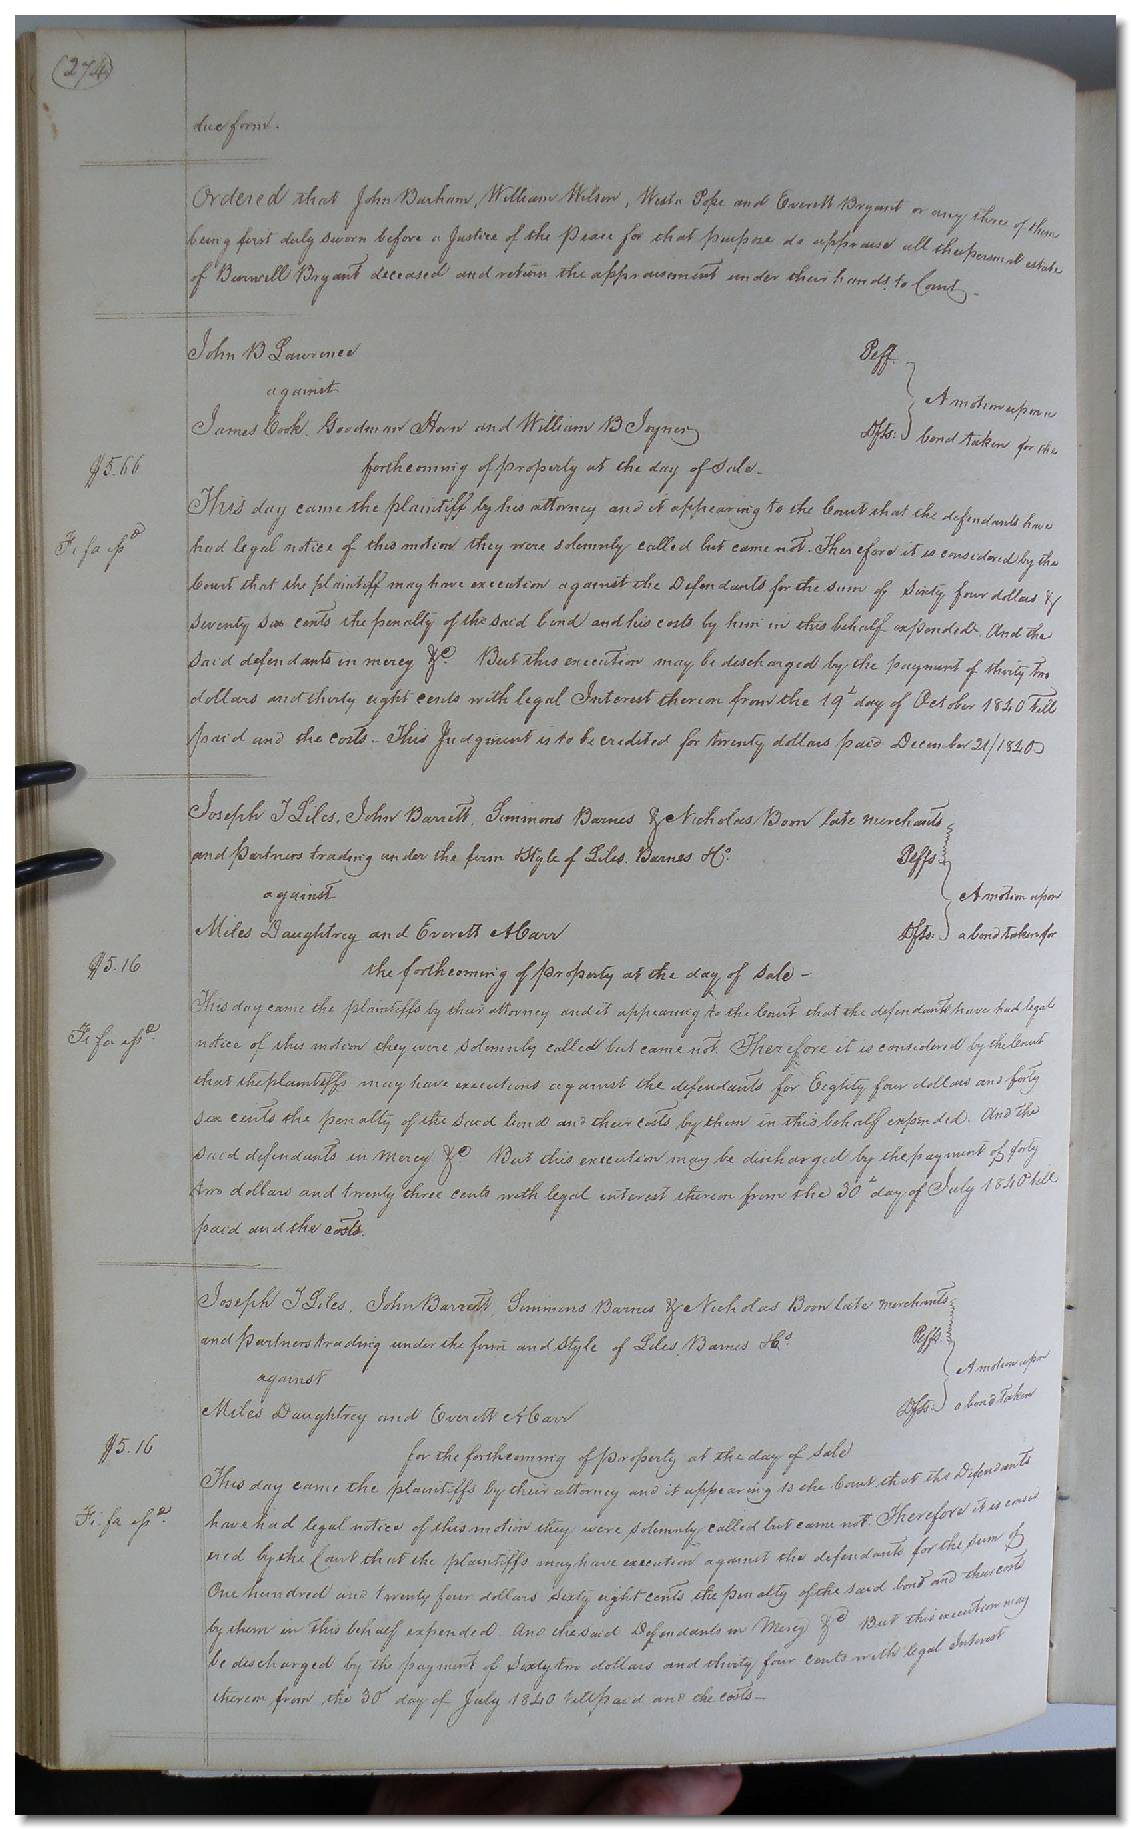 (274)
due form.
Ordered that John Barham, William Wilson, West Pope and Everett Bryant or any three of them
being first duly sworn before a Justice of the Peace for that purpose do appraise all the personal estate
of Burwell Bryant deceased and return the appraisement under their hands to Court.
John B Lawrence Plff.
against
A motion upon a
James Cook, Goodman Horn and William B Joyner Dfts. bond taken for the
$5.66
forthcoming of property at the day of sale.
This day came the plaintiff by his attorney and it appearing to the Court that the defendants have
Fi fa issd
had legal notice of this motion they were solemnly called but came not. Therefore it is considered by the
Court that the plaintiff may have execution against the Defendants for the sum of Sixty four dollars &
seventy six cents the penalty of the said bond and his costs by him in this behalf expended. And the
said defendants in mercy &c. But this execution may be discharged by the payment of thirty two
dollars and thirty eight cents with legal Interest thereon from the 19th day of October 1840 till
paid and the costs. This Judgment is to be credited for twenty dollars paid December 21/1840
Joseph T Liles, John Barrett, Simmons Barnes & Nicholas Boon late merchants
and partners trading under the firm & style of Liles, Barnes & Co. Plffs.
against
A motion upon
Miles Daughtrey and Everett A Carr Dfts. a bond taken for
$5.16
the forthcoming of property at the day of sale -
This day came the plaintiffs by their attorney and it appearing to the Court that the defendants have had legal
Fi fa issd.
notice of this motion they were solemnly called but came not. Therefore it is considered by the Court
that the plaintiffs may have executions against the defendants for Eighty four dollars and forty
six cents the penalty of the said bond and their costs by them in this behalf expended. And the
said defendants in mercy &c But this execution may be discharged by the payment of forty
two dollars and twenty three cents with legal interest thereon from the 30th day of July 1840 till
paid and the costs.
Joseph T Liles, John Barrett, Simmons Barnes & Nicholas Boon late merchants
and partners trading under the firm and style of Liles, Barnes & Co. Plffs
against
A motion upon
Miles Daughtrey and Everett A Carr Dfts. a bond taken
$5.16
for the forthcoming of property at the day of sale
This day came the plaintiffs by their attorney and it appearing to the Court that the Defendants
Fi. fa issd.
have had legal notice of this motion they were solemnly called but came not. Therefore it is consid
ered by the Court that the plaintiffs may have execution against the defendants for the sum of
One hundred and twenty four dollars sixty eight cents the penalty of the said bond and their costs
by them in this behalf expended. And the said Defendants in Mercy &c But this execution may
be discharged by the payment of Sixty two dollars and thirty four cents with legal Interest
thereon from the 30th day of July 1840 till paid and the costs -